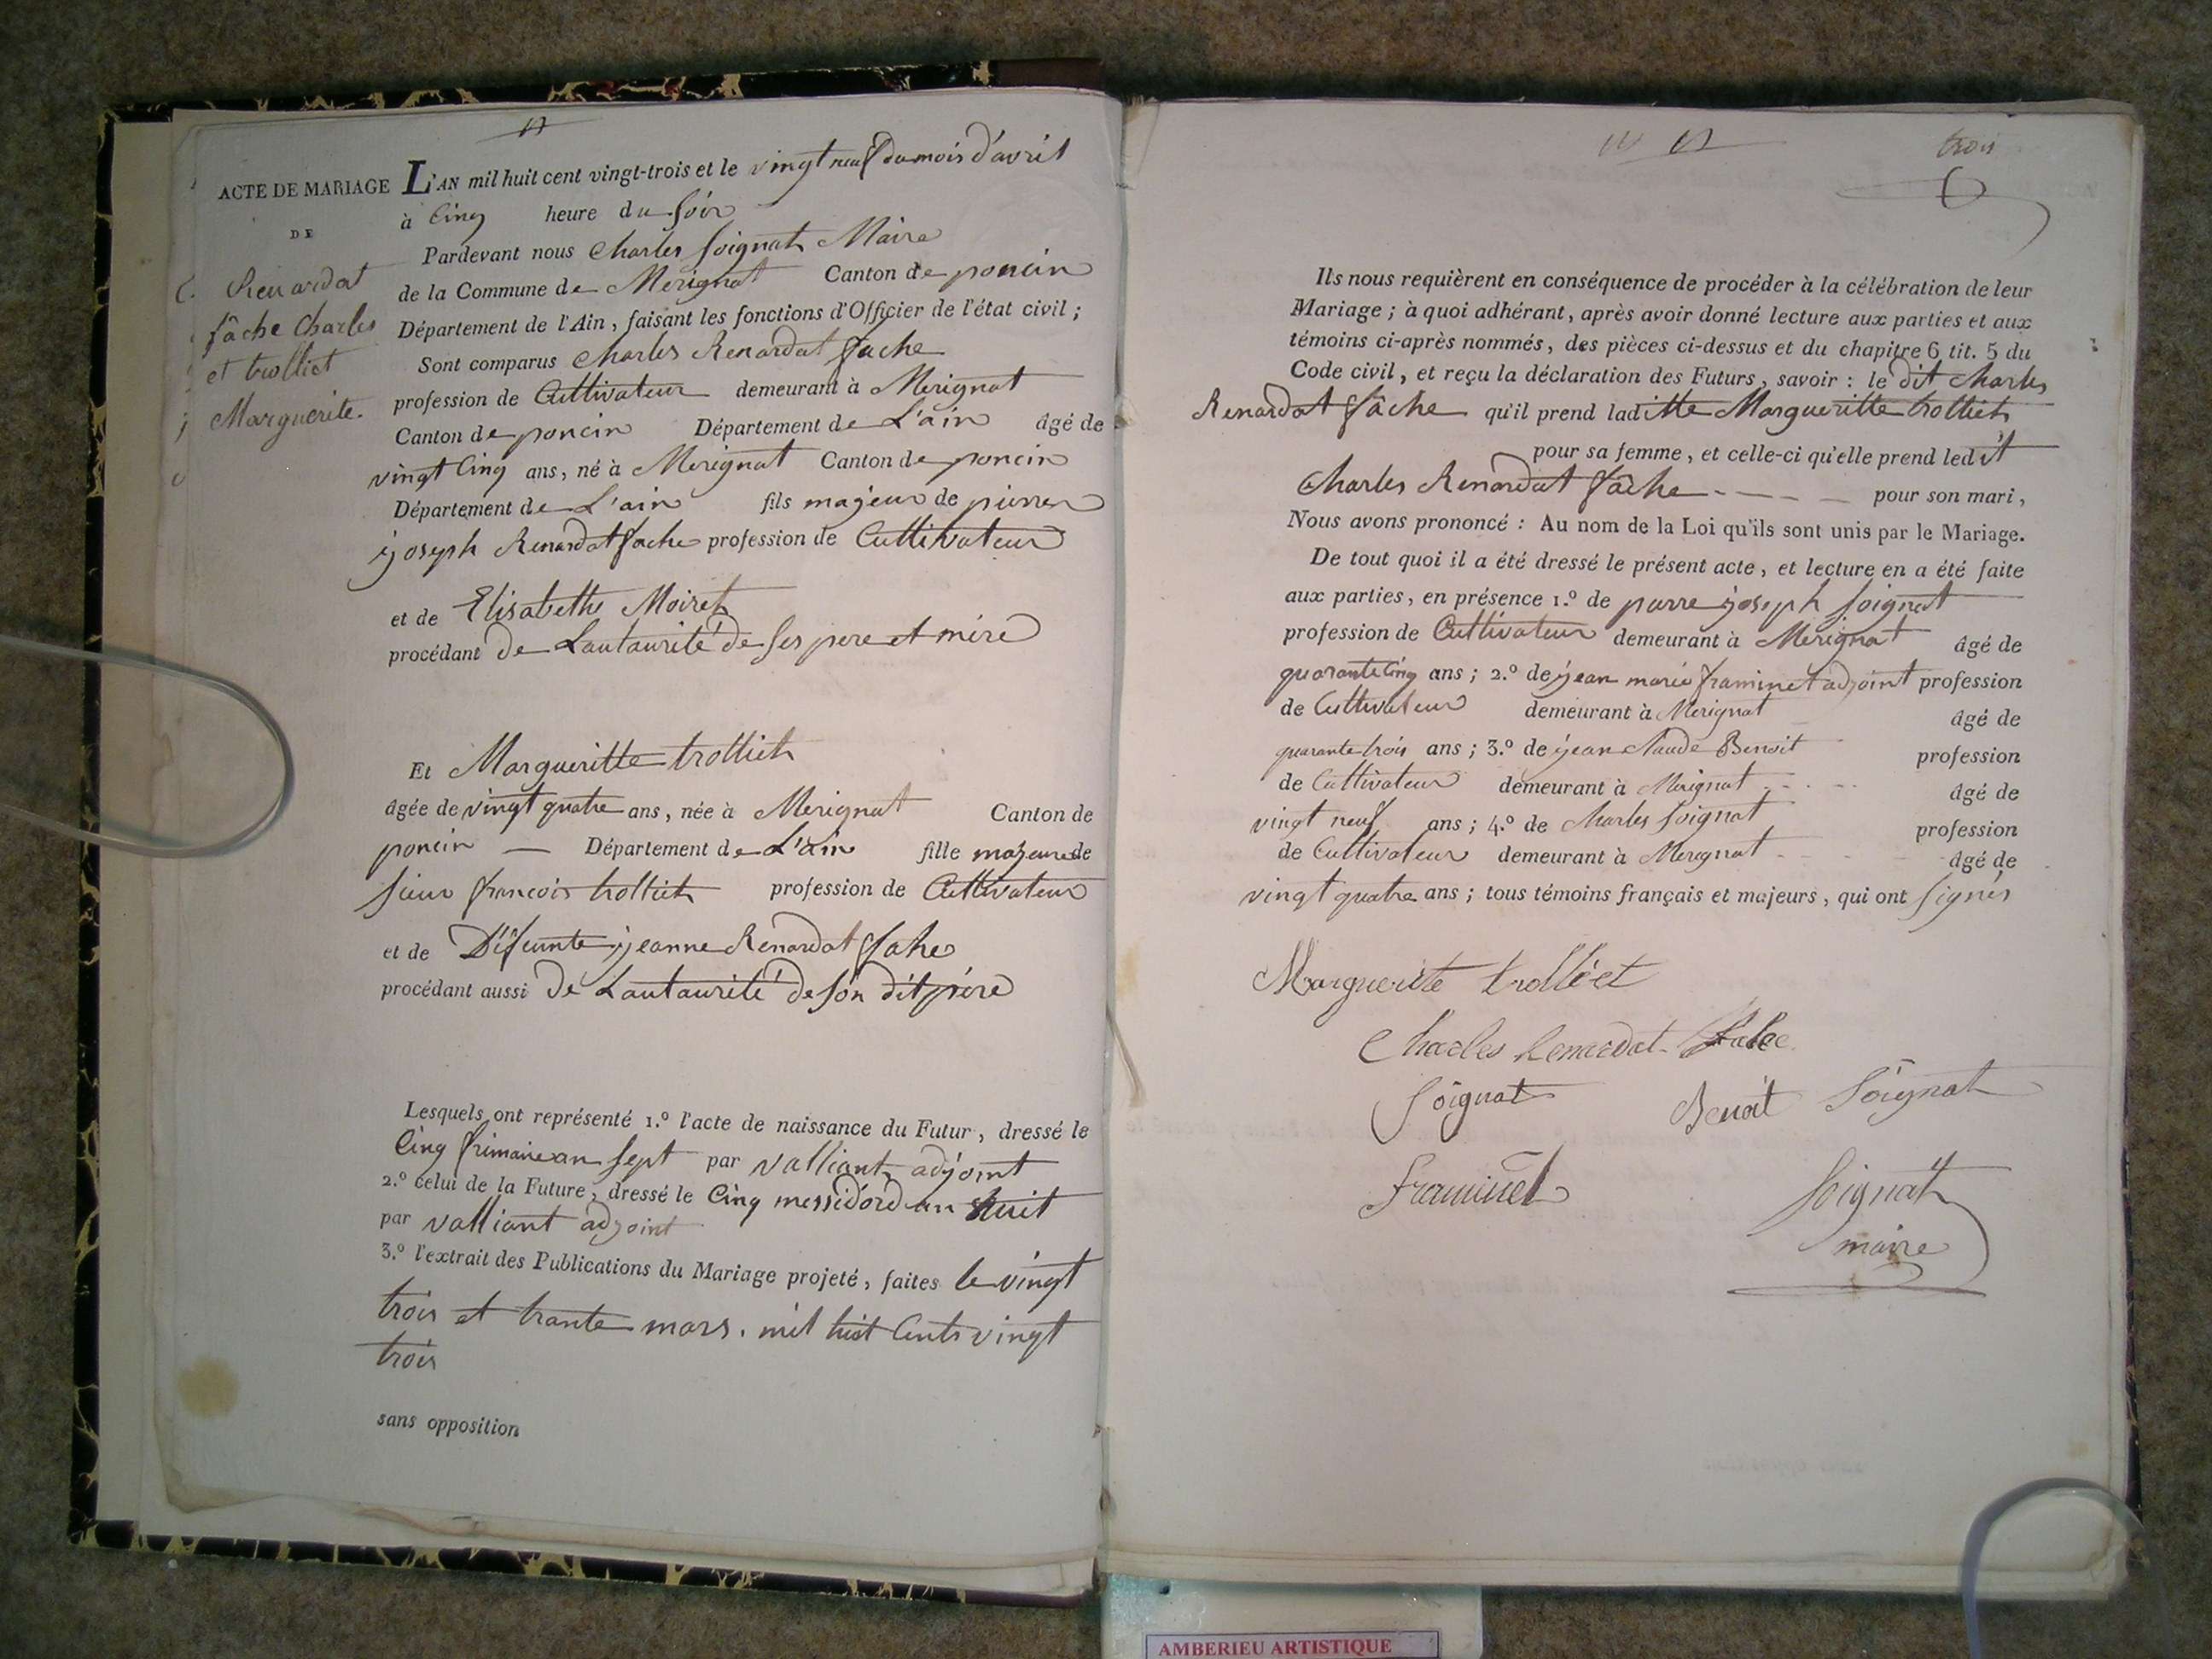 ACTE DE MARIAGE
DE
Renardat
fâche Charles
et trolliet
Marguerite.
L'AN mil huit cent vingt-trois et le vingt neuf du mois d'avril
à Cinq heure du Soir
Pardevant nous Charles Soignat Maire
de la Commune de Merignat Canton de poncin
Département de l'Ain, faisant les fonctions d'Officier de l'état civil;
Sont comparus Charles Renardat fache
profession de Cultivateur demeurant à Merignat
Canton de poncin Département de L'ain âgé de
vingt Cinq ans, né à Merignat Canton de poncin
Département de L'ain fils majeur de pierre
joseph Renardat fache profession de Cultivateur
et de Elisabeth Moiret
procédant de Lautaurité de Ses pere et mére
Et Margueritte trolliet
âgée de vingt quatre ans, née à Merignat Canton de
poncin Département de L'ain fille majeure de
Sieur francois trolliet profession de Cultivateur
et de Défeunte jeanne Renardat fahe
procédant aussi de Lautaurité de Son dit pére
Lesquels ont représenté 1.º l'acte de naissance du Futur, dressé le
Cinq frimaire an Sept par valliant adjoint
2.º celui de la Future, dressé le Cinq messidord an huit
par valliant adjoint
3.º l'extrait des Publications du Mariage projeté, faites le vingt
trois et trante mars. mil huit Cents vingt
trois
sans opposition
trois
Ils nous requièrent en conséquence de procéder à la célébration de leur
Mariage; à quoi adhérant, après avoir donné lecture aux parties et aux
témoins ci-après nommés, des pièces ci-dessus et du chapitre 6 tit. 5 du
Code civil, et reçu la déclaration des Futurs, savoir: le dit Charles
Renardat fâche qu'il prend laditte Margueritte trolliet
pour sa femme, et celle-ci qu'elle prend ledit
Charles Renardat fâche pour son mari,
Nous avons prononcé: Au nom de la Loi qu'ils sont unis par le Mariage.
De tout quoi il a été dressé le présent acte, et lecture en a été faite
aux parties, en présence 1.º de pierre joseph Soignat
profession de Cultivateur demeurant à Merignat âgé de
quarante Cinq ans; 2.º de jean marie framinet adjoint profession
de Cultivateur demeurant à Merignat âgé de
quarante trois ans; 3.º de jean Claude Benoit profession
de Cultivateur demeurant à Merignat âgé de
vingt neuf ans; 4.º de Charles Soignat profession
de Cultivateur demeurant à Merignat âgé de
vingt quatre ans; tous témoins français et majeurs, qui ont Signés
Marguerite trolliet
Charles Renardat
Soignat Benoit Soignat
Framinet Soignat
maire
AMBERIEU ARTISTIQUE